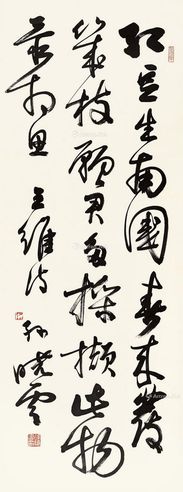 红豆生南國春来發
几枝愿君多採撷此物
最相思 王維诗 孙晓雲